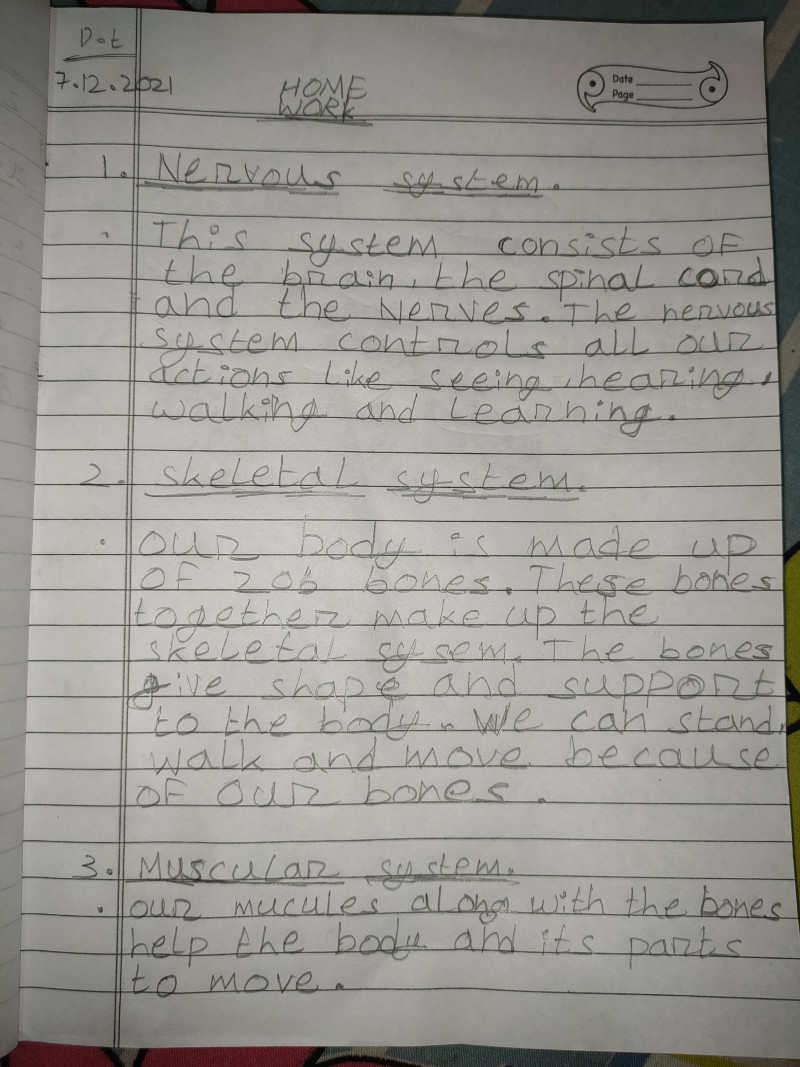 Dot
7.12.2021
HOME
WORK
Date
Page
1. Nervous system.
This system consists of
the brain, the spinal cord
and the Nerves. The nervous
system controls all our
actions like seeing, hearing,
walking and Learning.
2. skeletal system.
our body is made up
of 206 bones. These bones
together make up the
skeletal sysem. The bones
give shape and support
to the body. We can stand,
walk and move because
of our bones.
3. Muscular system.
our mucules along with the bones
help the body and its parts
to move.